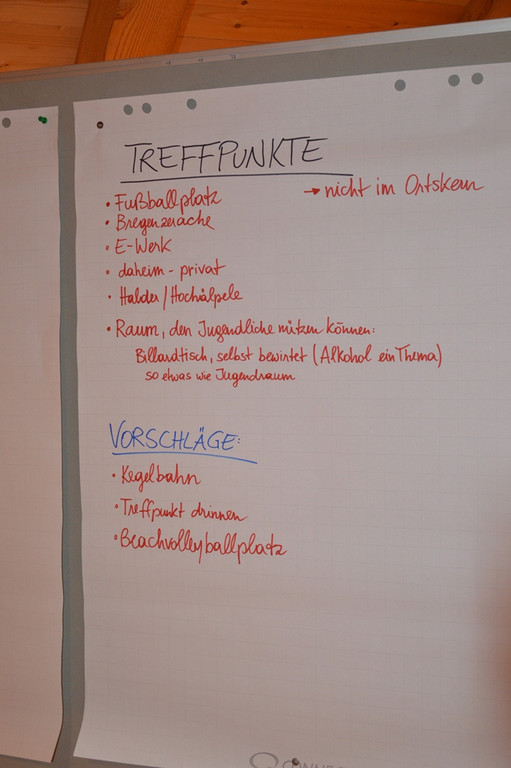 TREFFPUNKTE
→ nicht im Ortskern
• Fußballplatz
• Bregenzerache
• E-Werk
• daheim - privat
• Halder / Hochälpele
• Raum, den Jugendliche nützen können:
Billardtisch, selbst bewirtet (Alkohol ein Thema)
so etwas wie Jugendraum
VORSCHLÄGE:
• Kegelbahn
• Treffpunkt drinnen
• Beachvolleyballplatz